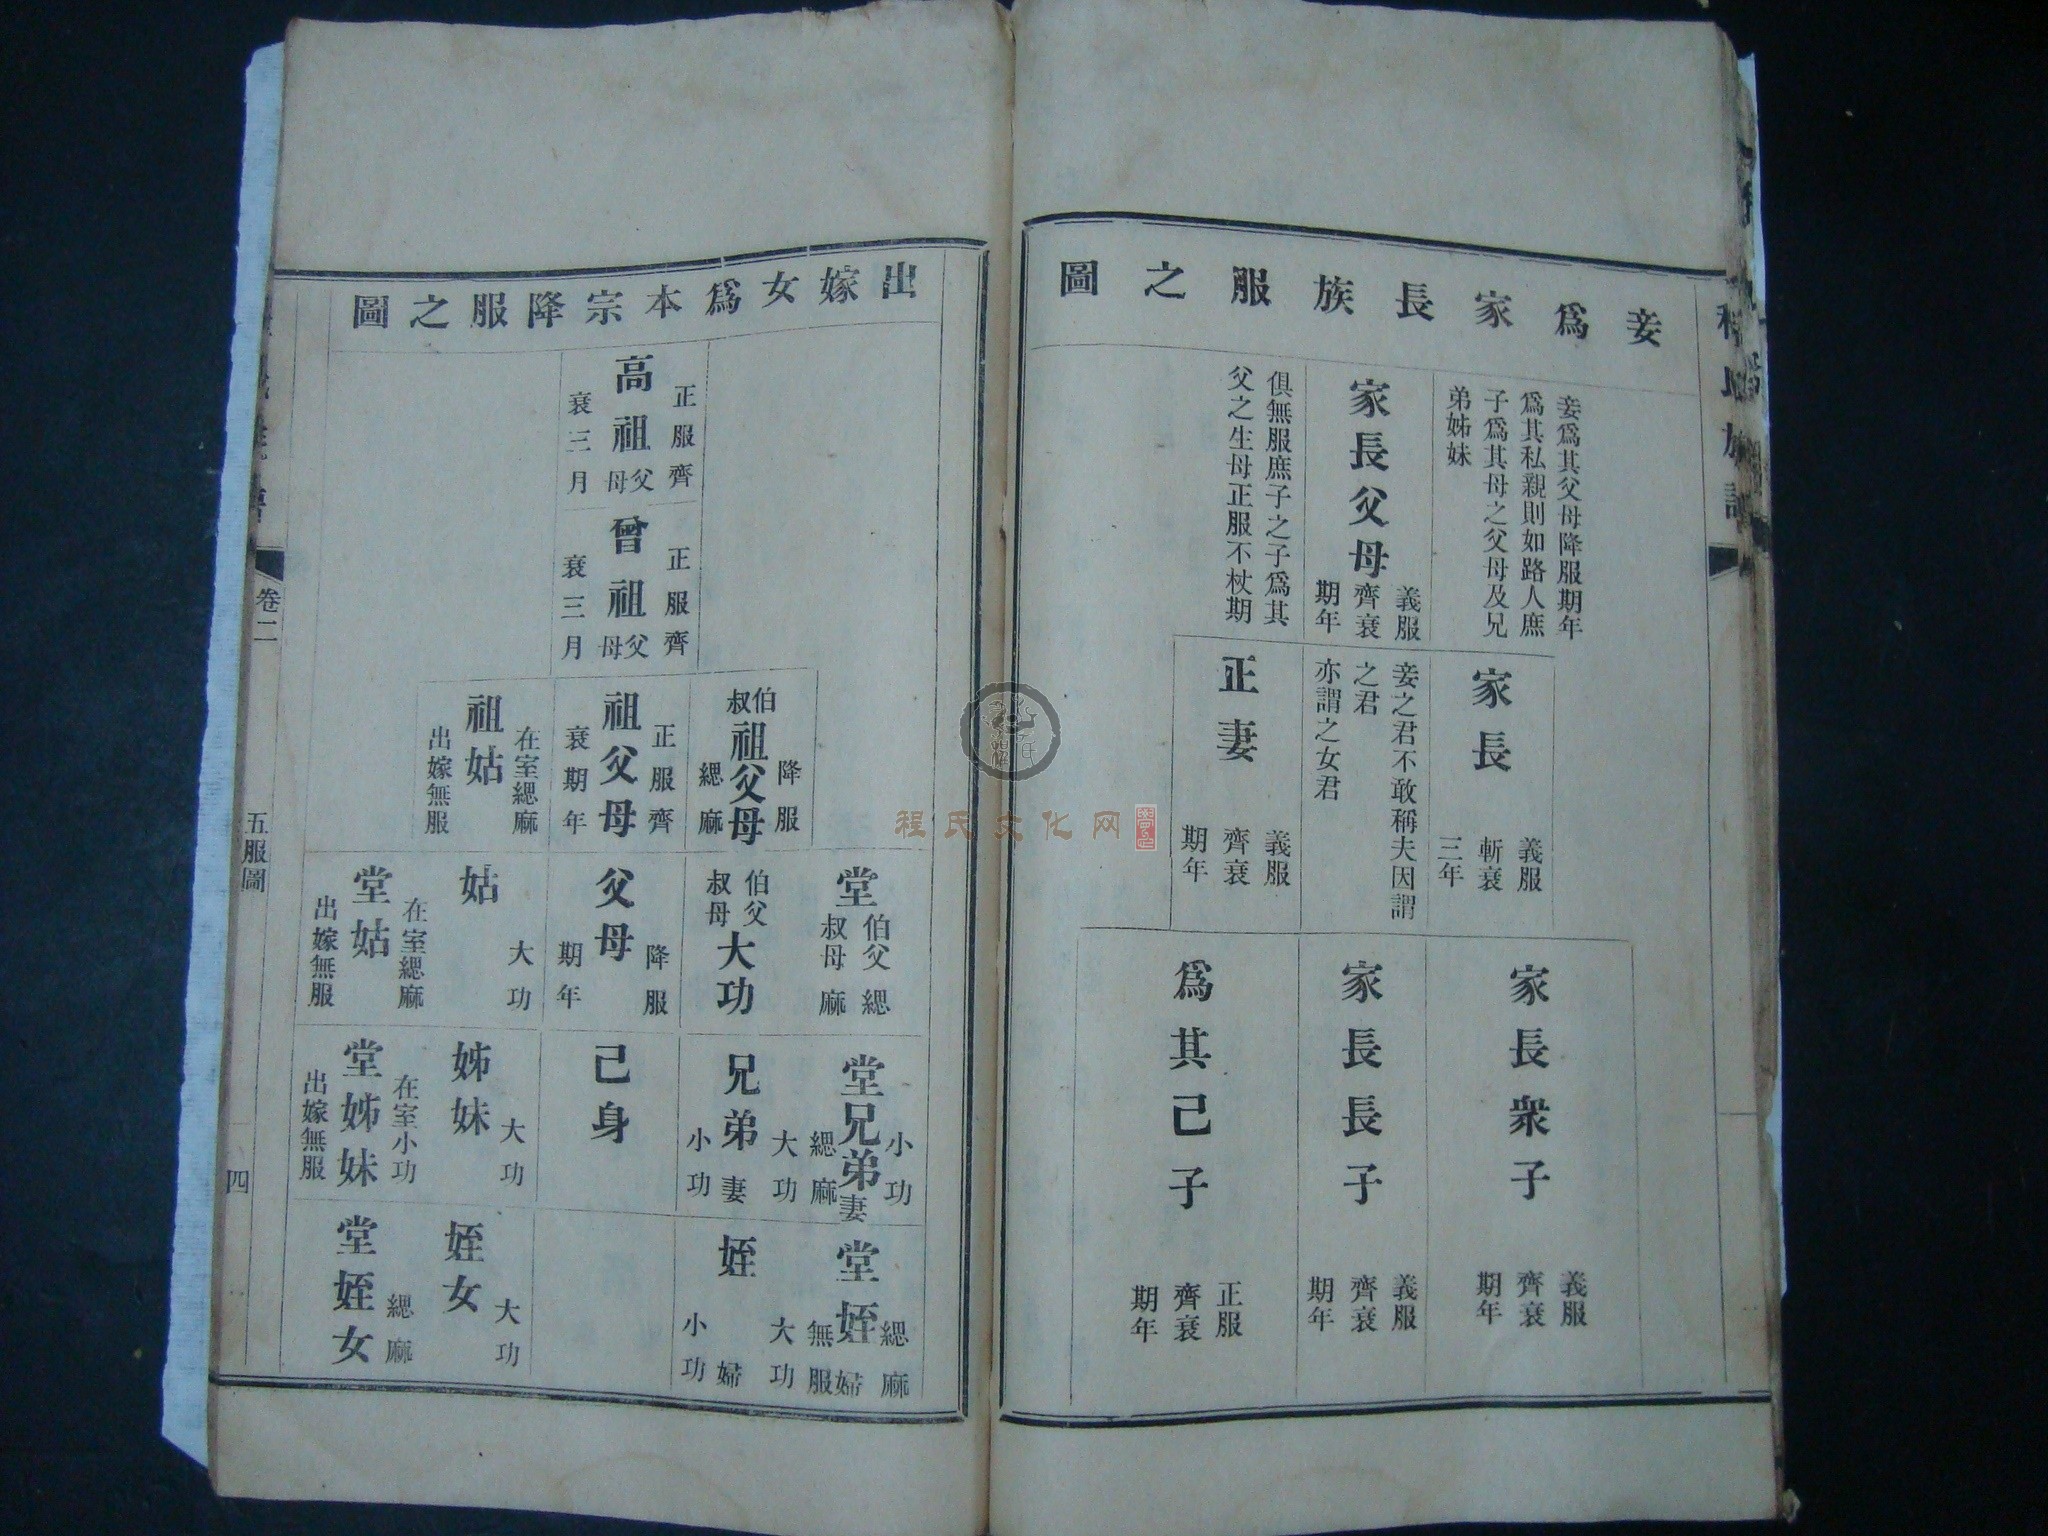 妾爲家長族服之圖
妾爲其父母降服期年
爲其私親則如路人庶
子爲其母之父母及兄
弟姊妹
家長父母
義服
齊衰
期年
俱無服庶子之子爲其
父之生母正服不杖期
家長
義服
斬衰
三年
妾之君不敢稱夫因謂
之君
亦謂之女君
正妻
義服
齊衰
期年
家長衆子
義服
齊衰
期年
家長長子
義服
齊衰
期年
爲其己子
正服
齊衰
期年
出嫁女爲本宗降服之圖
高祖父母
正服齊
衰三月
曾祖父母
正服齊
衰三月
伯叔祖父母
降服
緦麻
祖父母
正服齊
衰期年
祖姑
在室緦麻
出嫁無服
堂伯父叔母
緦麻
伯父叔母
大功
父母
降服
期年
姑
大功
堂姑
在室緦麻
出嫁無服
堂兄弟妻
小功
緦麻
兄弟妻
大功
小功
己身
姊妹
大功
堂姊妹
在室小功
出嫁無服
堂姪婦
緦麻
無服
姪婦
大功
小功
姪女
大功
堂姪女
緦麻
卷二
五服圖
四
程氏文化网